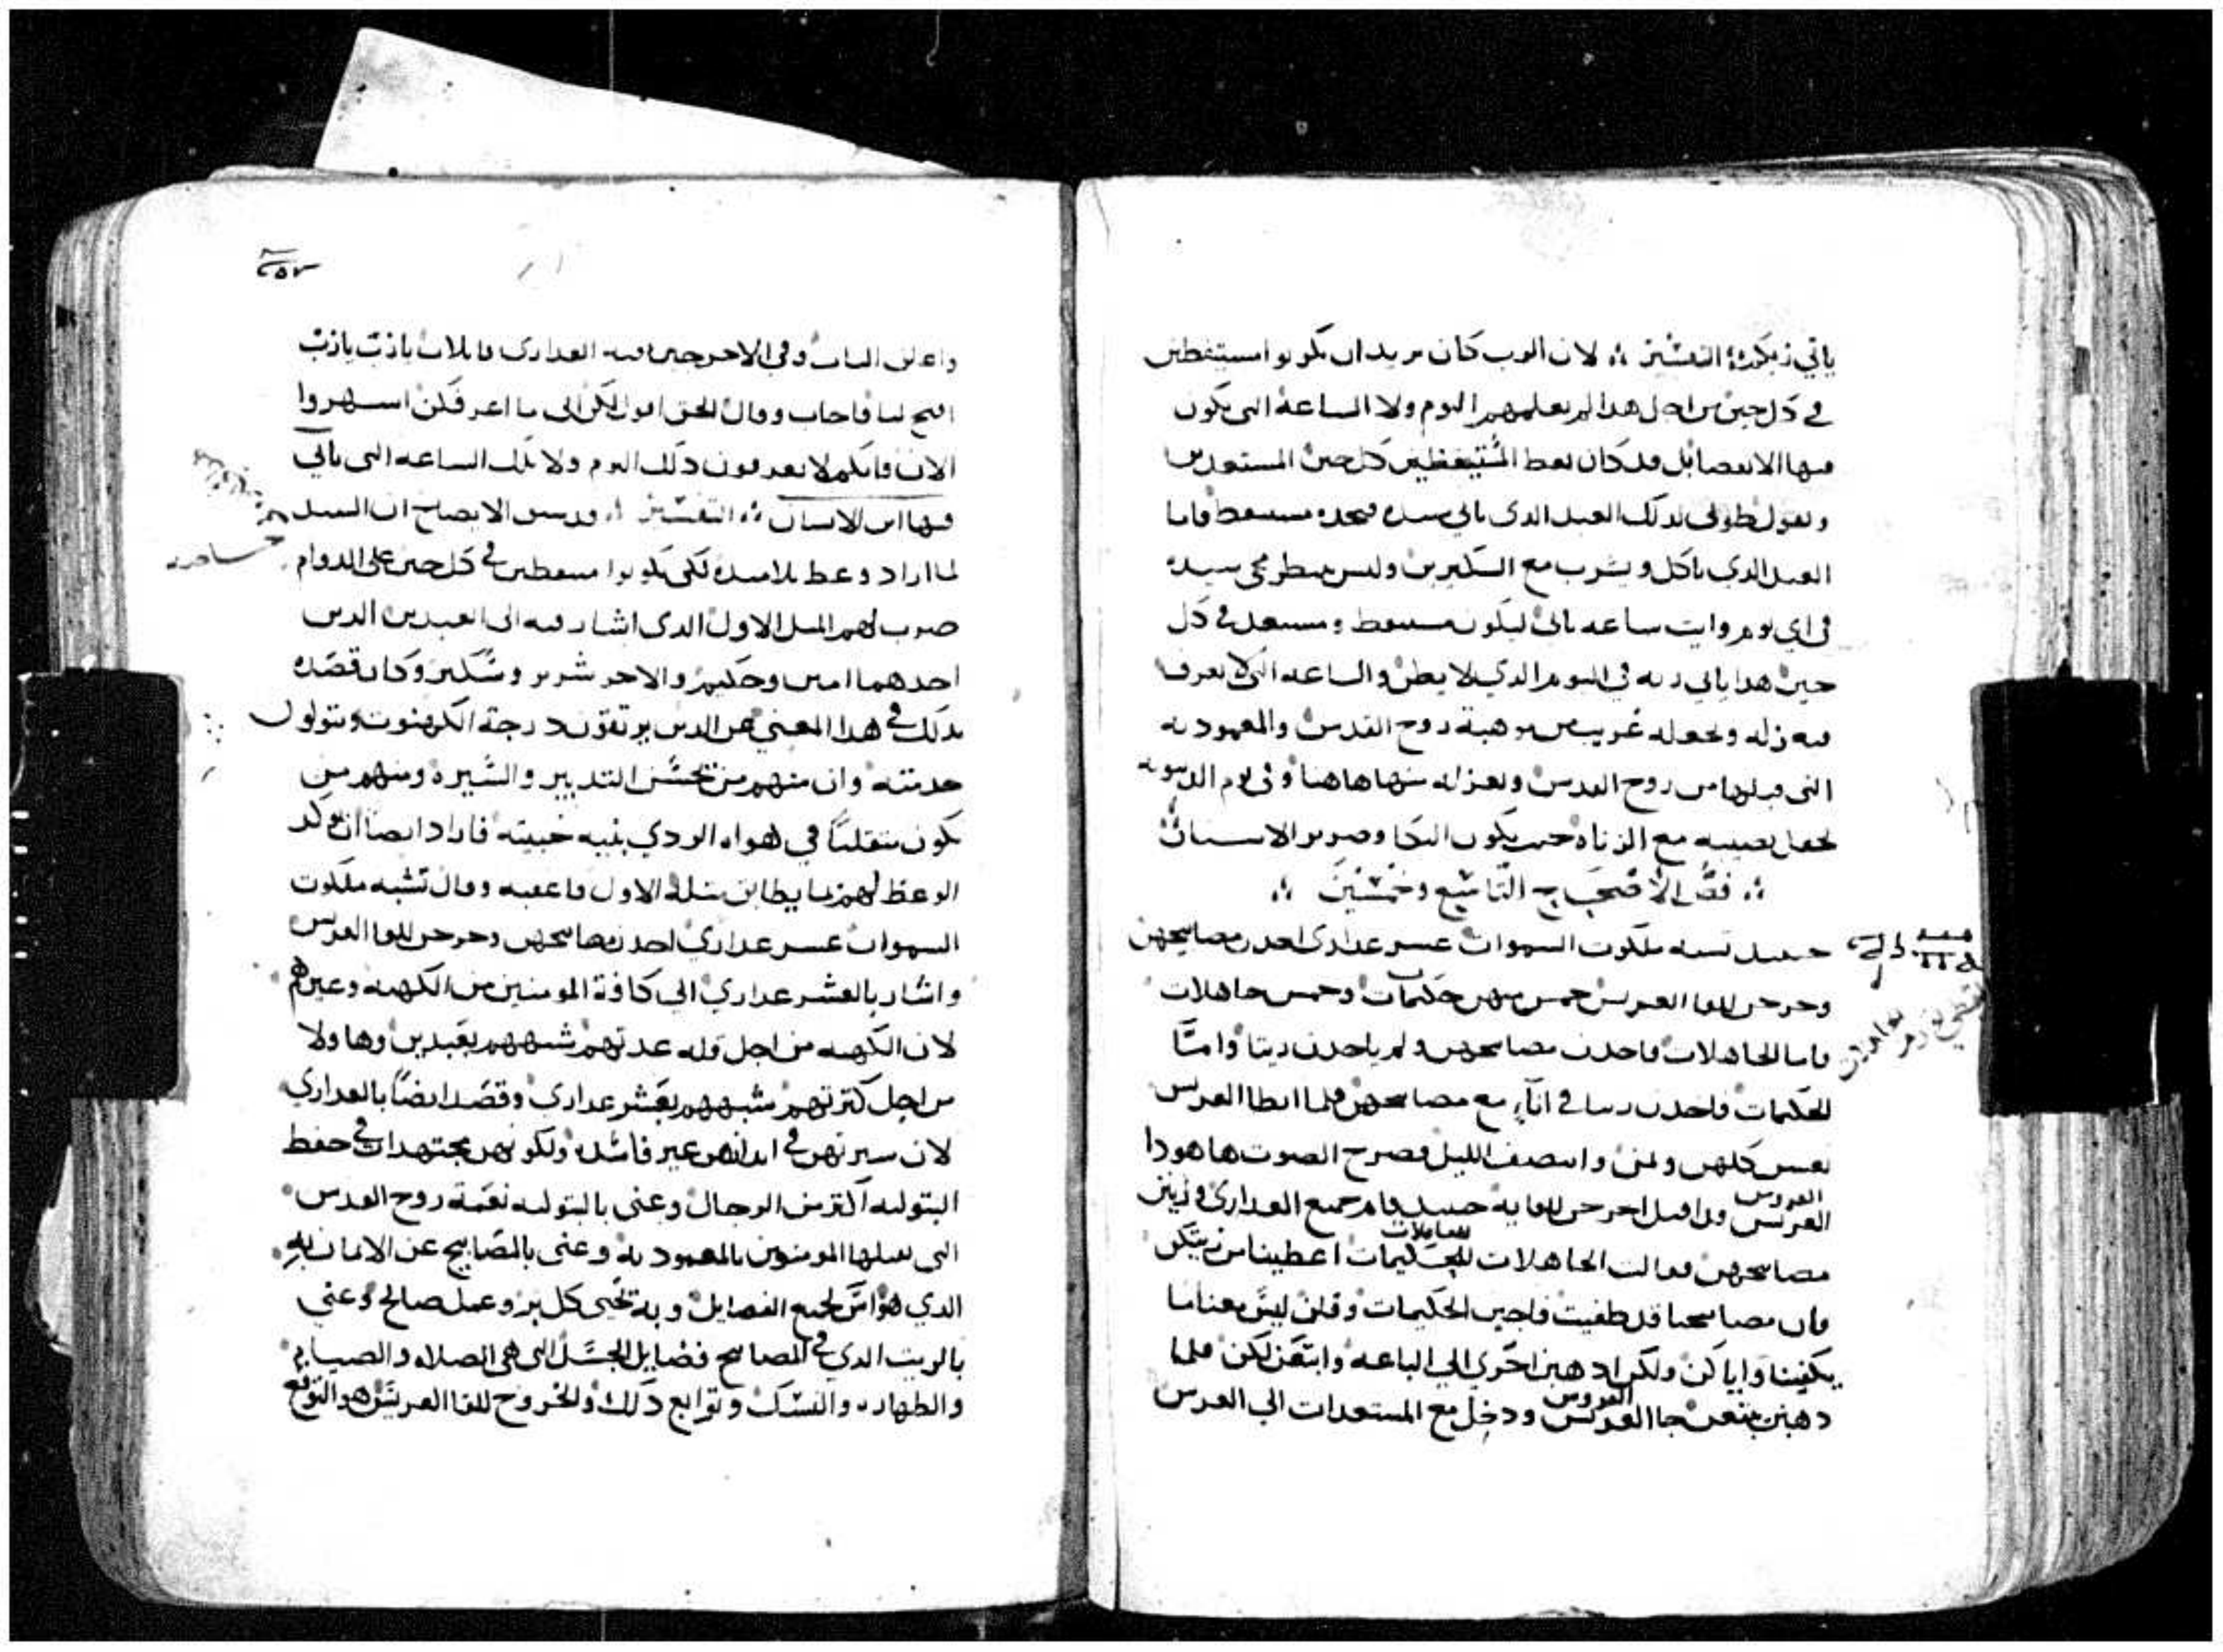 ياتي زيكده التفسير لان الرب كان يريد ان يكونوا مستيقظين
في كل حين من اجل هذا لم يعلمهم اليوم ولا الساعة التي يكون
فيها الانقضا بل قد كان يعط المستيقظين كل حين المستعدين
ويقول طوبى لذلك العبد الذي ياتي سيده فيجده مستيقظ فاما
العبد الذي ياكل ويشرب مع السكيرين وليس ينتظر مجي سيده
في اي يوم وايت ساعه ياتي ليكون مستيقظ ومستعد في كل
حين هدا ياتي ربه في اليوم الدي لا يظن والساعه التي لا يعرف
فيه نزله ويجعله غريب من موهبة روح القدس والمعموديه
التي قبلها من روح القدس ويعزله منها هاهنا وفي يوم الدينونه
يجعل نصيبه مع الزناه حيث يكون البكا وصرير الاسنان
فص الاصحاح التاسع وخمسين
حينيد تشبه ملكوت السموات عسر عدارى اخدن مصابيحهن
وخرجن للقا العريس خمس منهن حكيمات وخمس جاهلات
فاما الجاهلات فاخدن مصابيحهن ولم ياخدن زيتا واما
الحكيمات فاخدن زيتا في انآء مع مصابيحهن فلما ابطا العريس
نعسن كلهن ونمن وانتصف الليل فصرح الصوت هاهودا
العروس
العريس قد اقبل اخرجن للقايه حينيد قام جميع العدارى وزين
للعاقلات
مصابيحهن فقالت الجاهلات للحكيمات اعطينا من زيتكن
فان مصابيحنا قد طفيت فاجبن الحكيمات وقلن ليس معنا ما
يكفينا واياكن ولكن ادهبن احرى الي الباعه وابتعن لكن فلما
العروس
دهبن يبتعن جا العريس ودخل مع المستعدات الي العرس
٢٥٣
واغلق الباب وفي الاخر جين بقية العدارى قايلات يا رب يا رب
افتح لنا فاجاب وقال الحق اقول لكن اني ما اعرفكن اسهروا
الان فانكم لا تعرفون دلك اليوم ولا تلك الساعه التي ياتي
فيها ابن الانسان التفسير الايضاح ان السيد
لما اراد وعظ تلاميده لكي يكونوا مستيقظين في كل حين على الدوام
ضرب لهم المثل الاول الدى اشار فيه الى العبدين الدين
احدهما امين وحكيم والاخر شرير وسكير وكان قصده
بدلك في هدا المعني عن الدين يرتقون درجة الكهنوت ويتولون
خدمته وان منهم من يحسن التدبير والسيرة ومنهم من
يكون متقلبا في هواه الردي بنيه خبيثه فاراد ايضا ان يوكد
الوعظ لهم بما يطابق مثله الاول فاعقبه وقال تشبه ملكوت
السموات عسر عداري اخدن مصابيحهن وخرجن للقا العريس
واشار بالعشر عداري الي كافة المومنين من الكهنه وغيرهم
لان الكهنه من اجل قله عدتهم شبههم بعبدين وهاولا
من اجل كترتهم شبههم بعشر عدارى وقصد ايضا بالعداري
لان سيرتهن في ابدانهن غير فاسده ولكونهن مجتهدات في حفظ
البتوليه اكتر من الرجال وعنى بالبتوليه نعمة روح القدس
التي يقبلها المومنون بالمعموديه وعنى بالمصابيح عن الامانه
الدي هو اس لجميع الفضايل وبه يحيى كل بر وعمل صالح وعني
بالزيت الدي في المصابيح فضايل الجسد التي هي الصلاه والصيام
والطهاره والنسك وتوابع دلك والخروح للقا العريس هو التوقع